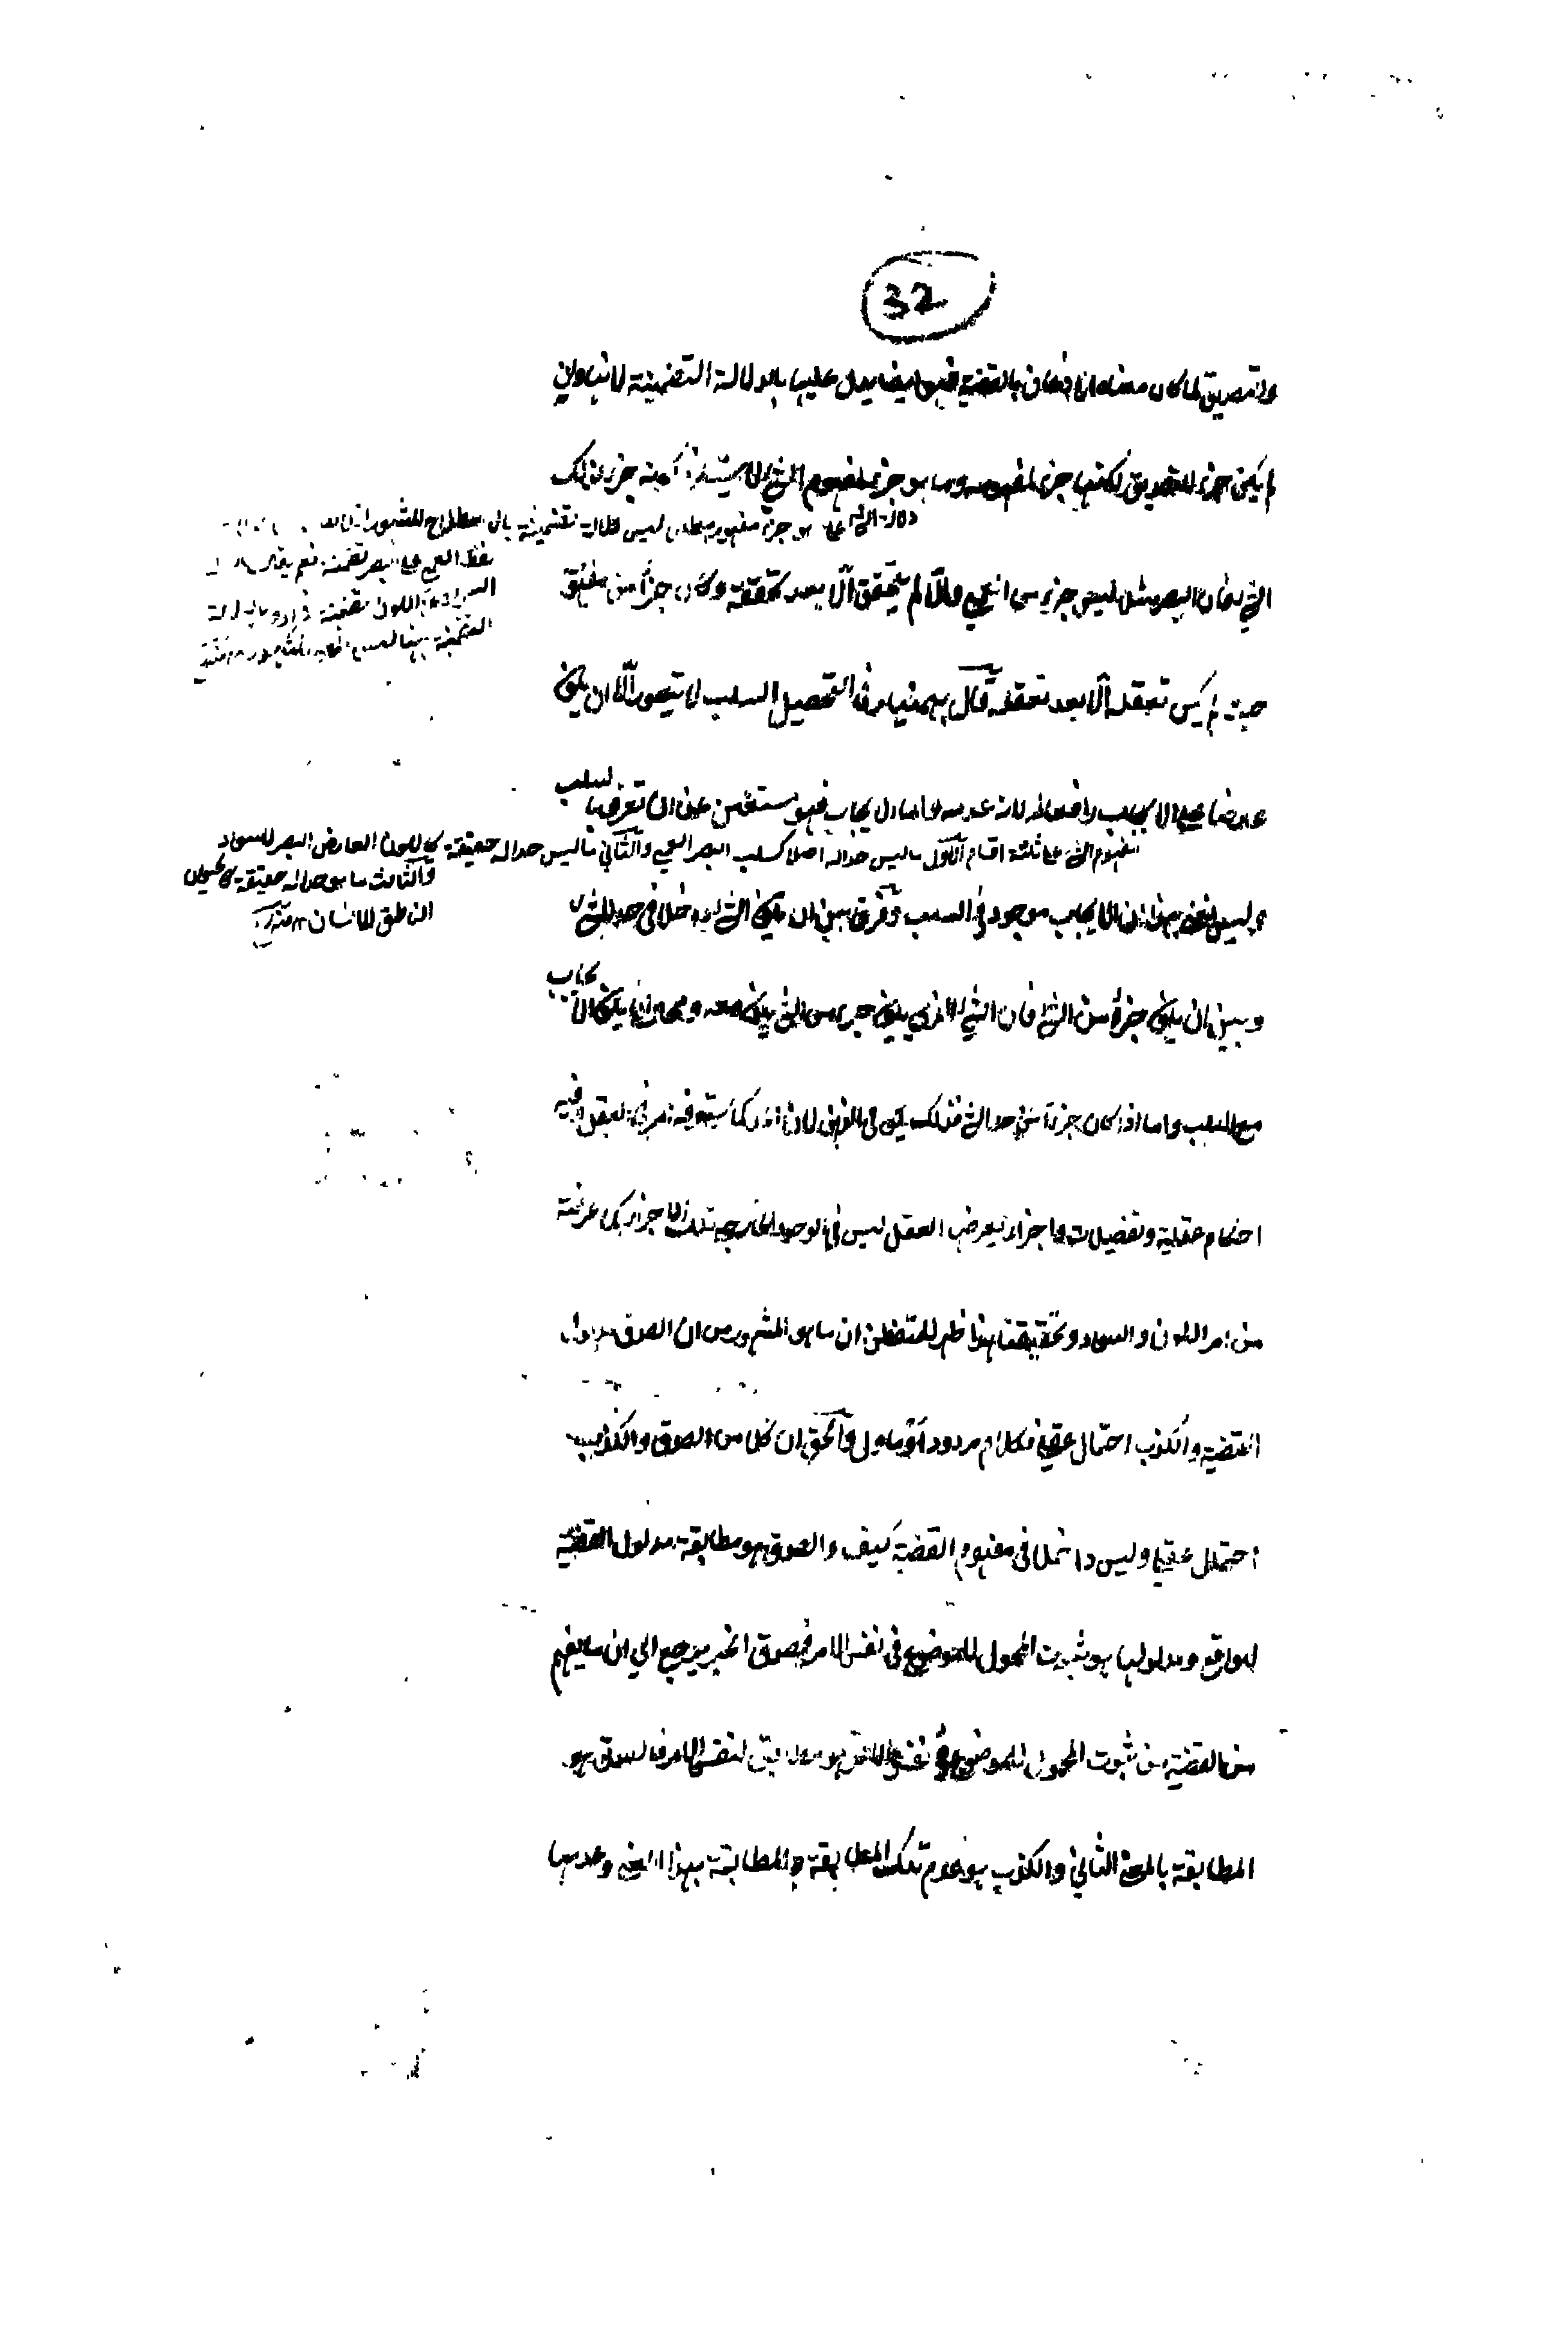 32
والتصديق لما كان معناه الاذعان بالقضية فهو ايضا يدل عليها بالدلالة التضمنية لانها وان
لم يكن جزء للتصديق لكنها جزء لمفهومه وما هو جزء لمفهوم الشئ لا يلزم كونه جزء لذلك
دلالة الشئ على ما هو جزء مفهومه مطلقا ليس دلالة تضمنية بالاصطلاح المشهور
لفظ العمى على البصر تضمنية نعم يقال
السواد على اللون تضمنية
التضمنية
الشئ فان البصر مثلا ليس جزء من العمى والا لم يتحقق الا بعد تحققه وكان جزأ من مفهومه
حيث لم يكن تعقله الا بعد تعقله قال بهمنيار في التحصيل السلب لا يتصور الا ان يكون
عارضا على الايجاب رافعا له لانه عدمه واما الايجاب فهو مستغن عن ان تعرف بالسلب
مفهوم الشئ على ثلاثة اقسام الاول ما ليس حدا له اصلا كسلب البصر للعمى والثاني ما ليس حدا له حقيقة كاللون العارض البصر للسواد
والثالث ما هو حد له حقيقة كالحيوان
الناطق للانسان ١٢ منه
وليس نعني بهذا ان الايجاب موجود في السلب وفرق بين ان يكون الشئ داخلا في حد الشئ
وبين ان يكون جزأ من الشئ فان الشئ الذي يكون جزء من الشئ يكون معه ومحال ان يكون الايجاب
مع السلب واما اذا كان جزءا من حد الشئ فذلك يكون في الذهن لان كما ستعرفه يعرض للعقل فيه
احكام عقلية وتفصيلات واجزاء يعرضها العقل ليس في الوجود الخارجي تلك الاجزاء كما عرفته
من امر اللون والسواد وبتحقيقنا هذا ظهر للمتفطن ان ما هو المشهور من ان الصدق مدلول
القضية والكذب احتمال عقلي فكلام مردود او مأول والحق ان كلا من الصدق والكذب
احتمال عقلي وليس داخلا في مفهوم القضية كيف والصدق هو مطابقة مدلول القضية
للواقع ومدلولها هو ثبوت المحمول للموضوع في نفس الامر فصدق الخبر يرجع الى ان ما يفهم
من القضية من ثبوت المحمول للموضوع في نفس الامر هو مطابق لنفس الامر فالصدق هو
المطابقة بالمعنى الثاني والكذب هو عدم تلك المطابقة والمطابقة بهذا المعنى وعدمها